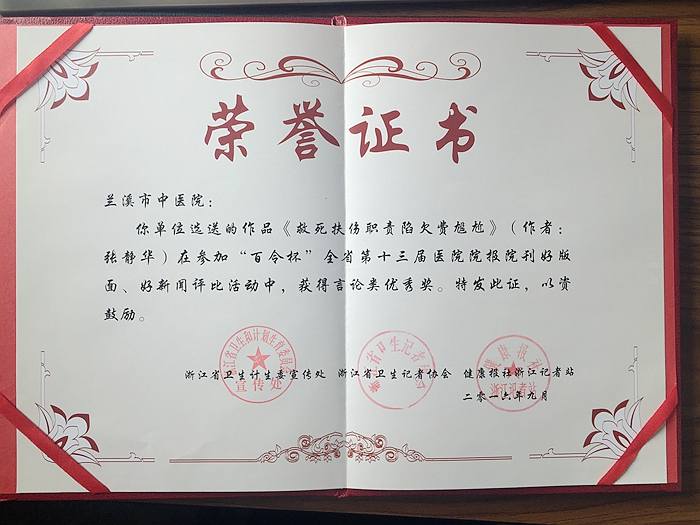 荣誉证书
兰溪市中医院：
你单位选送的作品《救死扶伤职责陷欠费尴尬》（作者：
张静华）在参加“百令杯”全省第十三届医院院报院刊好版
面、好新闻评比活动中，获得言论类优秀奖。特发此证，以资
鼓励。
浙江省卫生和计划生育委员会
宣传处
浙江省卫生记者协会
健康报社
浙江记者站
浙江省卫生计生委宣传处 浙江省卫生记者协会 健康报社浙江记者站
二零一六年九月